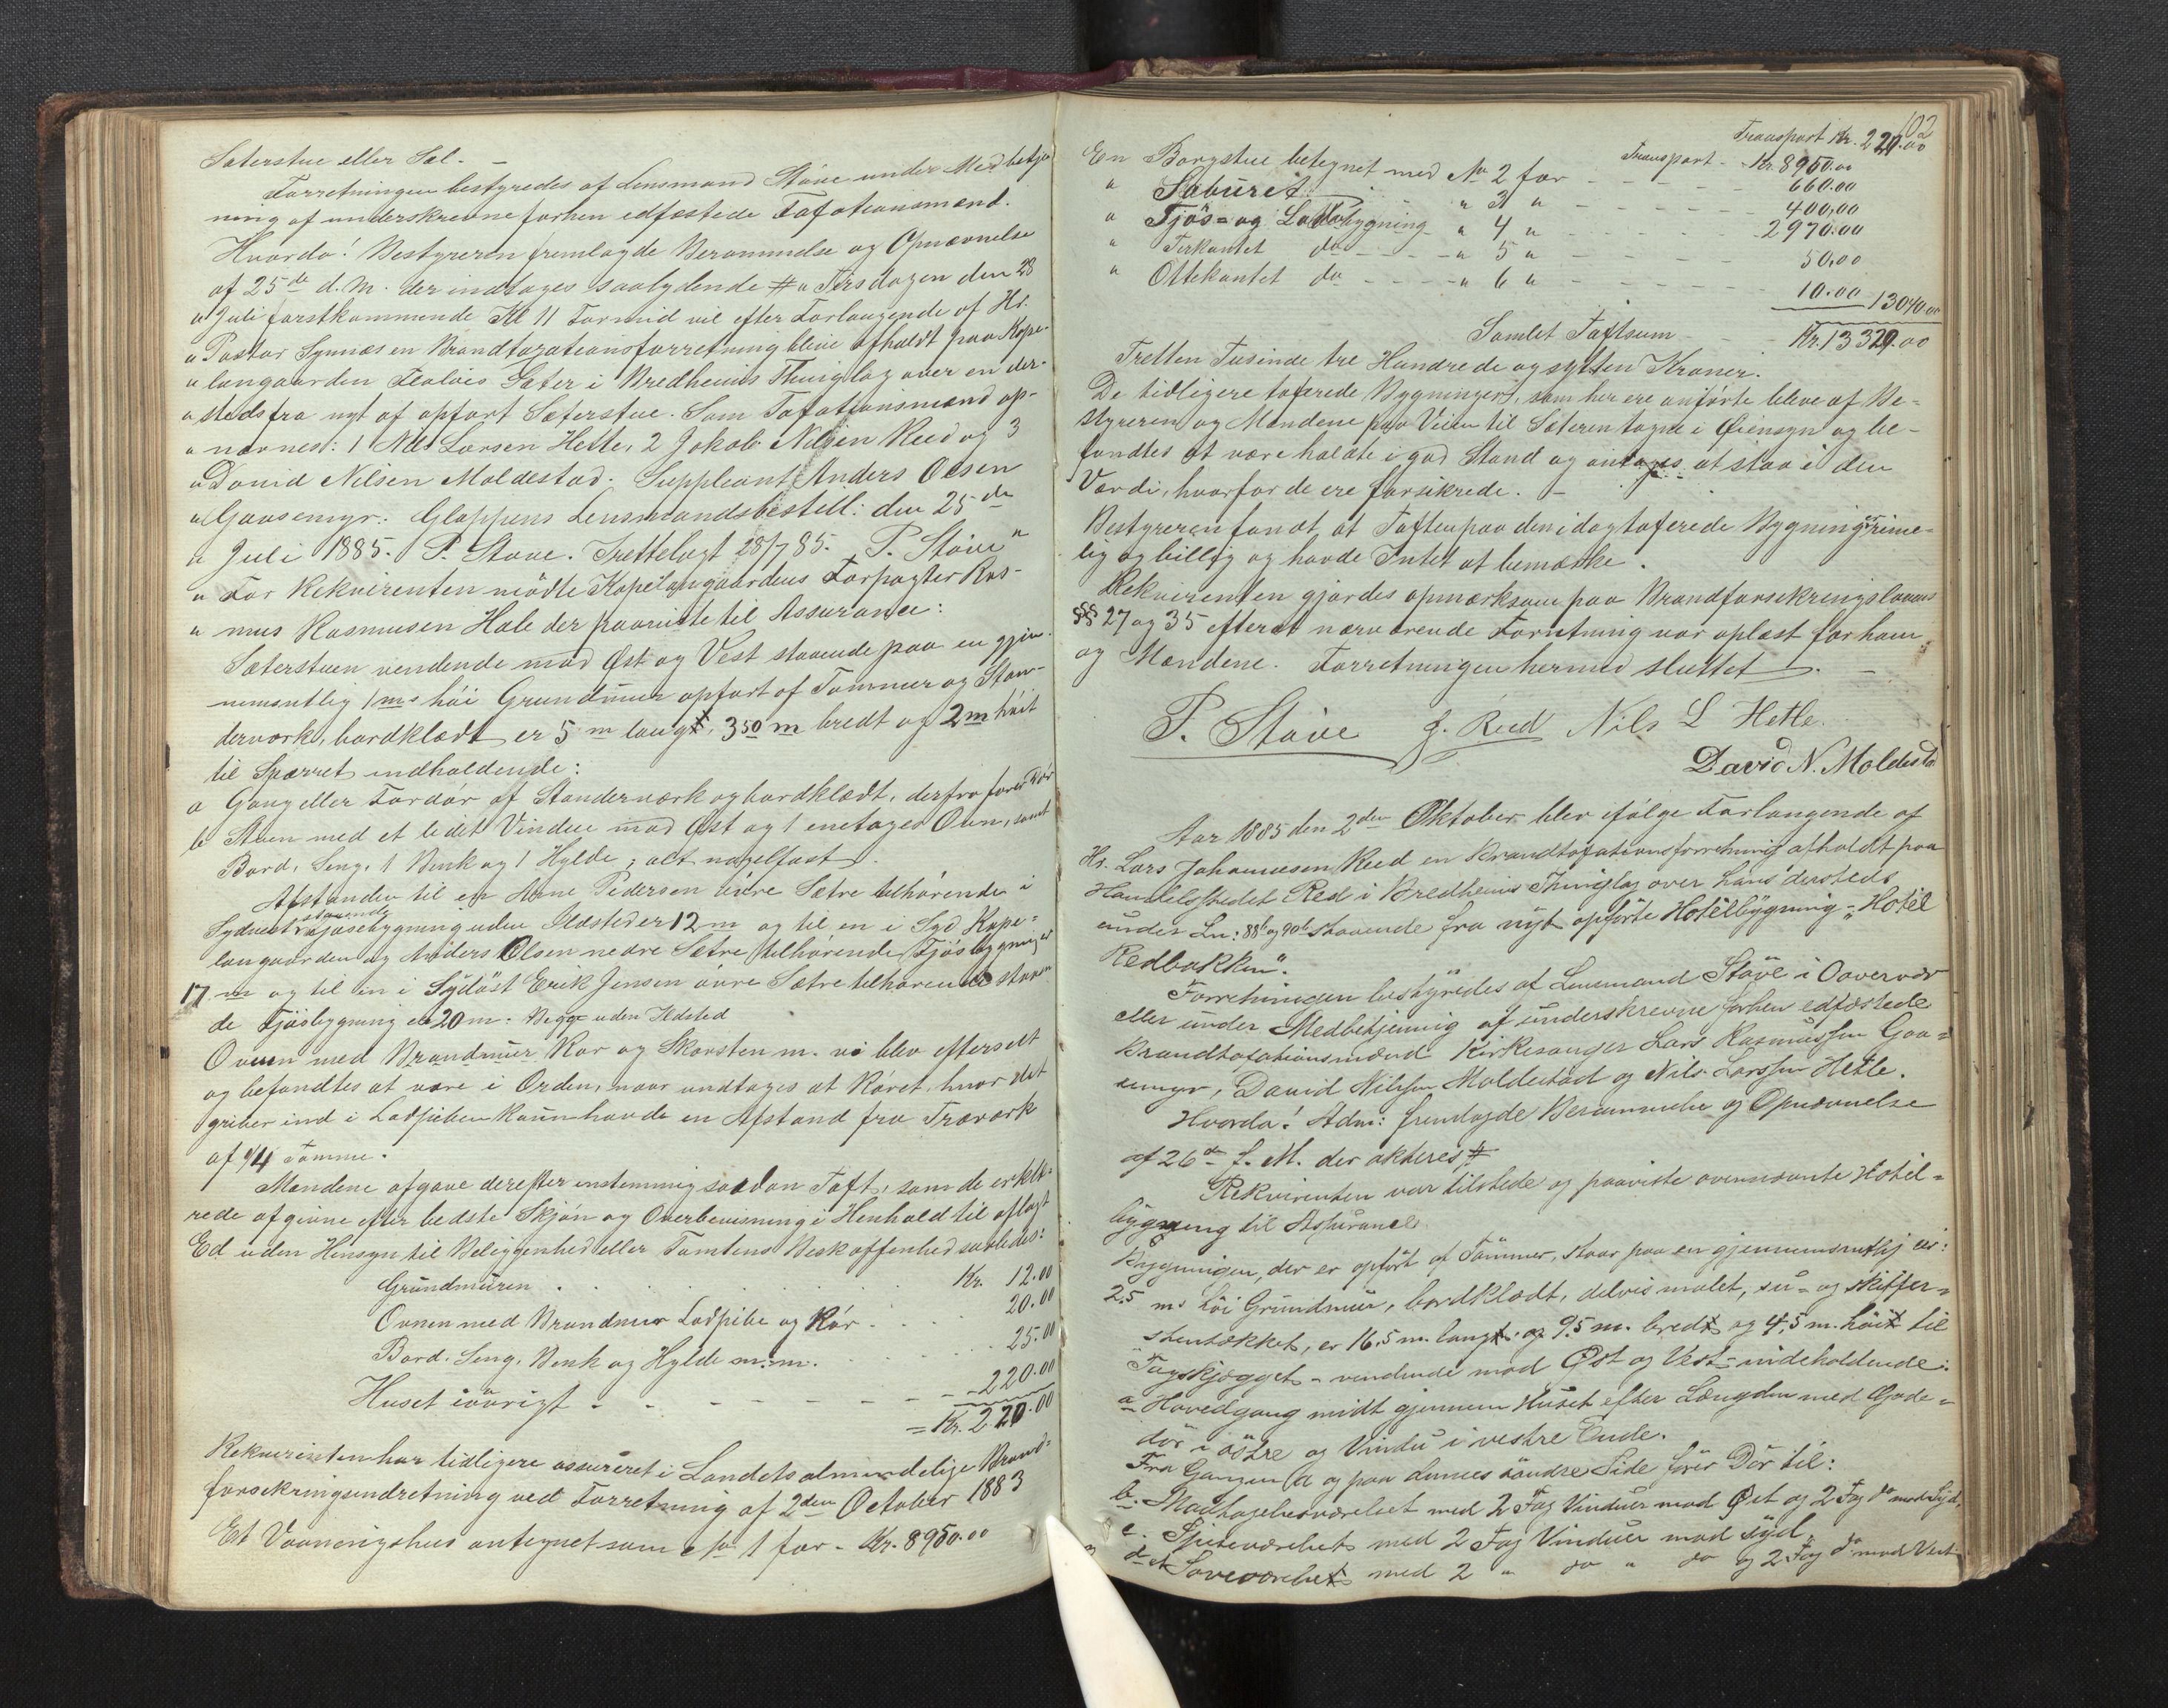 Sæterstue eller Sæl. -
Forretningen bestyredes af Lensmand Støve under Medbetje
ning af underskrevne forhen edfæstede Taxationsmænd.
Hvorda! Bestyreren fremlagde Berammelse og Opnævnelse
af 25de d. M. der indtages saalydende # " Tirsdagen den 28
" Juli førstkommende Kl 11 Formid vil efter Forlangende af Hr.
" Pastor Synnæs en Brandtaxationsforretning blive afholdt paa Kape-
" langaarden Sæter i Bredheims Thinglag over en der-
" steds fra nyt af opført Sæterstue. Som Taxationsmænd op-
" nævnes: 1 Nils Larsen Hetle, 2 Jakob Nilsen Reed og 3
" David Nilsen Moldestad. Suppleant Anders Olsen
" Gaasemyr. Gloppens Lensmandsbestill: den 25de
" Juli 1885. P. Støve. Irettelagt 28/7 85. P. Støve"
" For Rekvirenten mödte Kapelangaardens Forpagter Ras-
" mus Rasmusen Hole der paaviste til Assurance:
Sæterstuen vendende mod Øst og Vest staaende paa en gjen-
nemsntlig 1 m. høi Grundmur opført af Tømmer og Stan-
derværk, bordklædt er 5 m langt, 3 50 m bredt og 2 m høit
til Sparret indholdende:
a Gang eller Fordør af Standerværk og bordklædt, derfra fører Dør
b Stuen med et lidet Vindue mod Øst og 1 enetages Ovn, samt
Bord, Seng, 1 Benk og 1 Hylde, alt nagelfast.
Afstanden til en Arne Pedersen övre Sætre tilhørende i
Sydvest staaende Fjøsebygning uden Ildsted er 12 m og til en i Syd Kape-
langaarden og Anders Olsen nedre Sætre tilhørende Fjösbygninger
17 m og til en i Sydöst Erik Jensen övre Sætre tilhørende staaen
de Fjösbygning er 20 m: Begge uden Ildsted
Ovnen med Brandmur Rør og Skorsten m. vi blev efterseet
og befandtes at være i Orden, naar undtages at Røret, hvor det
griber ind i Ladpiben kun havde en Afstand fra Træværk
af 1/4 Tomme.
Mændene afgave derefter enstemmig saadan Taxt, som de erklæ-
rede afgivne efter bedste Skjøn og Overbevisning i Henhold til aflagt
Ed uden Hensyn til Beliggenhed eller Tomtens Beskaffenhed saaledes:
Grundmuren . . . . . . Kr. 12.00
Ovnen med Brandmur Ladpibe og Rør . . . 20.00
Bord. Seng. Benk og Hylde m.m. . . . . 25.00
Huset iøvrigt - - - - - - - 220.00
= Kr. 220.00
Rekvirenten har tidligere assureret i Landets almindelige Brand-
forsekringsindretning ved Forretning af 2den October 1883
Et Vaaningshus antegnet som No 1 for - Kr. 8950.00
102
Transport Kr. 229.00
Transport - Kr. 8950.00
En Borgstue betegnet med No 2 for - - - - 660.00
" Stabüret " 3 " - - - - 400,00
" Fjös- og Ladebygning " 4 " - - - - 2970.00
" Firkantet do - - - " 5 " - - - - 50,00
" Ottekantet do - - - " 6 " - - - - 10.00 13040.00
Samlet Taxtsum - - Kr. 13329.00
Tretten Tusinde tre Hundrede og sytten Kroner.
De tidligere taxerede Bygninger, som her ere anførte bleve af Be-
styreren og Mændene paa Veien til Sæteren tagne i Øiensyn og be-
fandtes at være holdte i god Stand og antages at staa i den
Værdi, hvorfor de ere forsikrede. -
Bestyreren fandt at Taxten paa den i dag taxerede Bygning er rime-
lig og billig og havde Intet at bemærke.
Rekvirenten gjordes opmærksom paa Brandforsekringslovens
§§ 27 og 35 efterat nærværende Forretning var oplæst for ham
og Mændene. Forretningen hermed sluttet.
P. Støve J. Reed Nils L Hetle.
David N. Moldestad
Aar 1885 den 2den Oktober blev ifølge Forlangende af
Hr. Lars Johannesen Reed en Brandtaxationsforretning afholdt paa
Handelsstedet Red i Bredheims Thinglag over hans dersteds
under Ln: 88b og 90b staaende fra nyt opførte Hotelbygning - "Hotel
Redbakken".
Forretningen bestyredes af Lensmand Støve i Overvær
eller under Medbetjening af underskrevne forhen edfæstede
Brandtaxationsmænd Kirkesanger Lars Rasmussen Gaa-
semyr, David Nilssen Moldestad og Nils Larssen Hetle.
Hvorda! Adm: fremlagde Berammelse og Opnævnelse
af 26de f. M. der akteres #
Rekvirenten var tilstede og paaviste ovennævnte Hotel-
bygning til Assurance
Bygningen, der er opført af Tømmer, staar paa en gjennemsnitlig ca:
2.5 m. høi Grundmur, bordklædt, delvis malet, su- og skiffer-
stentækket, er 16,5 m. langt, og 9.5 m. bredt og 4,5 m. høit til
Tagskjægget - vendende mod Øst og Vest - indeholdende:
a Hovedgang midt gjennem Huset efter Længden med Gade-
dør i østre og Vindu i vestre Ende.
Fra Gangen a og paa dennes søndre Side fører Dör til:
b. Modtagelsesværelset med 2 Fag Vinduer mod Øst og 2 Fag do mod Syd,
c. Spiseværelset med 2 Fag Vinduer mod syd,
d. et Soveværelset med 2 " do " do og 2 Fag do mod Vest